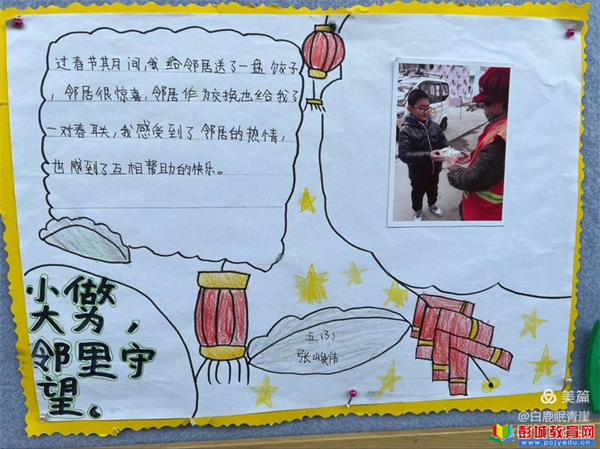 过春节期间,我给邻居送了一盘饺子
,邻居很惊喜,邻居作为交换也给我了
一对春联,我感受到了邻居的热情,
也感到了互相帮助的快乐。
小做
大为,
邻里守
望。
五(3)
张峻伟
美篇
@白鹿眠青崖
彭城教育网
www.pcjyedu.cn